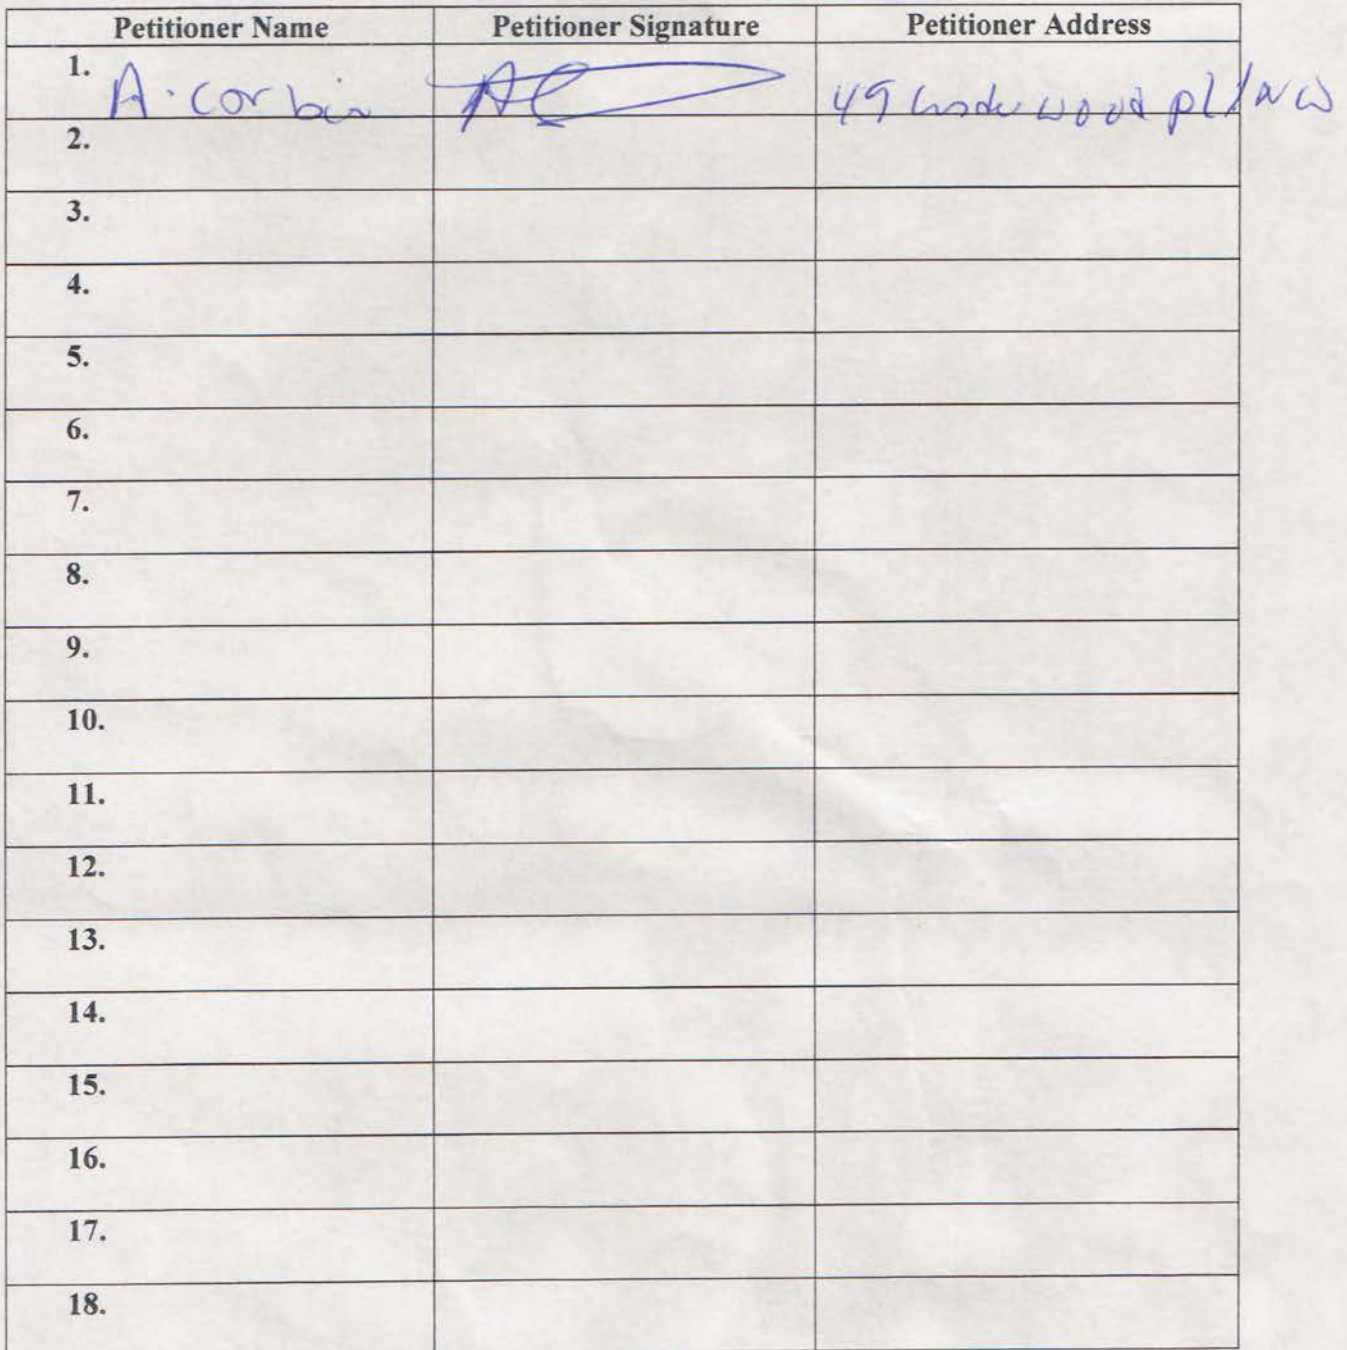 Petitioner Name Petitioner Signature Petitioner Address
1. A. corbin AC 49 underwood pl NW
2.
3.
4.
5.
6.
7.
8.
9.
10.
11.
12.
13.
14.
15.
16.
17.
18.